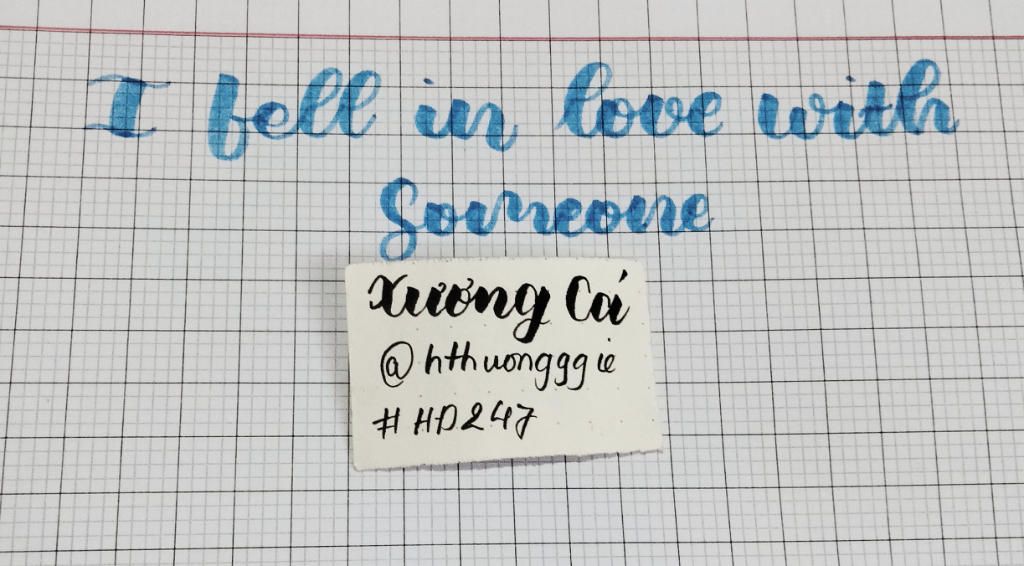 I fell in love with
Someone
Xương Cá
@hthuongggie
#HD247